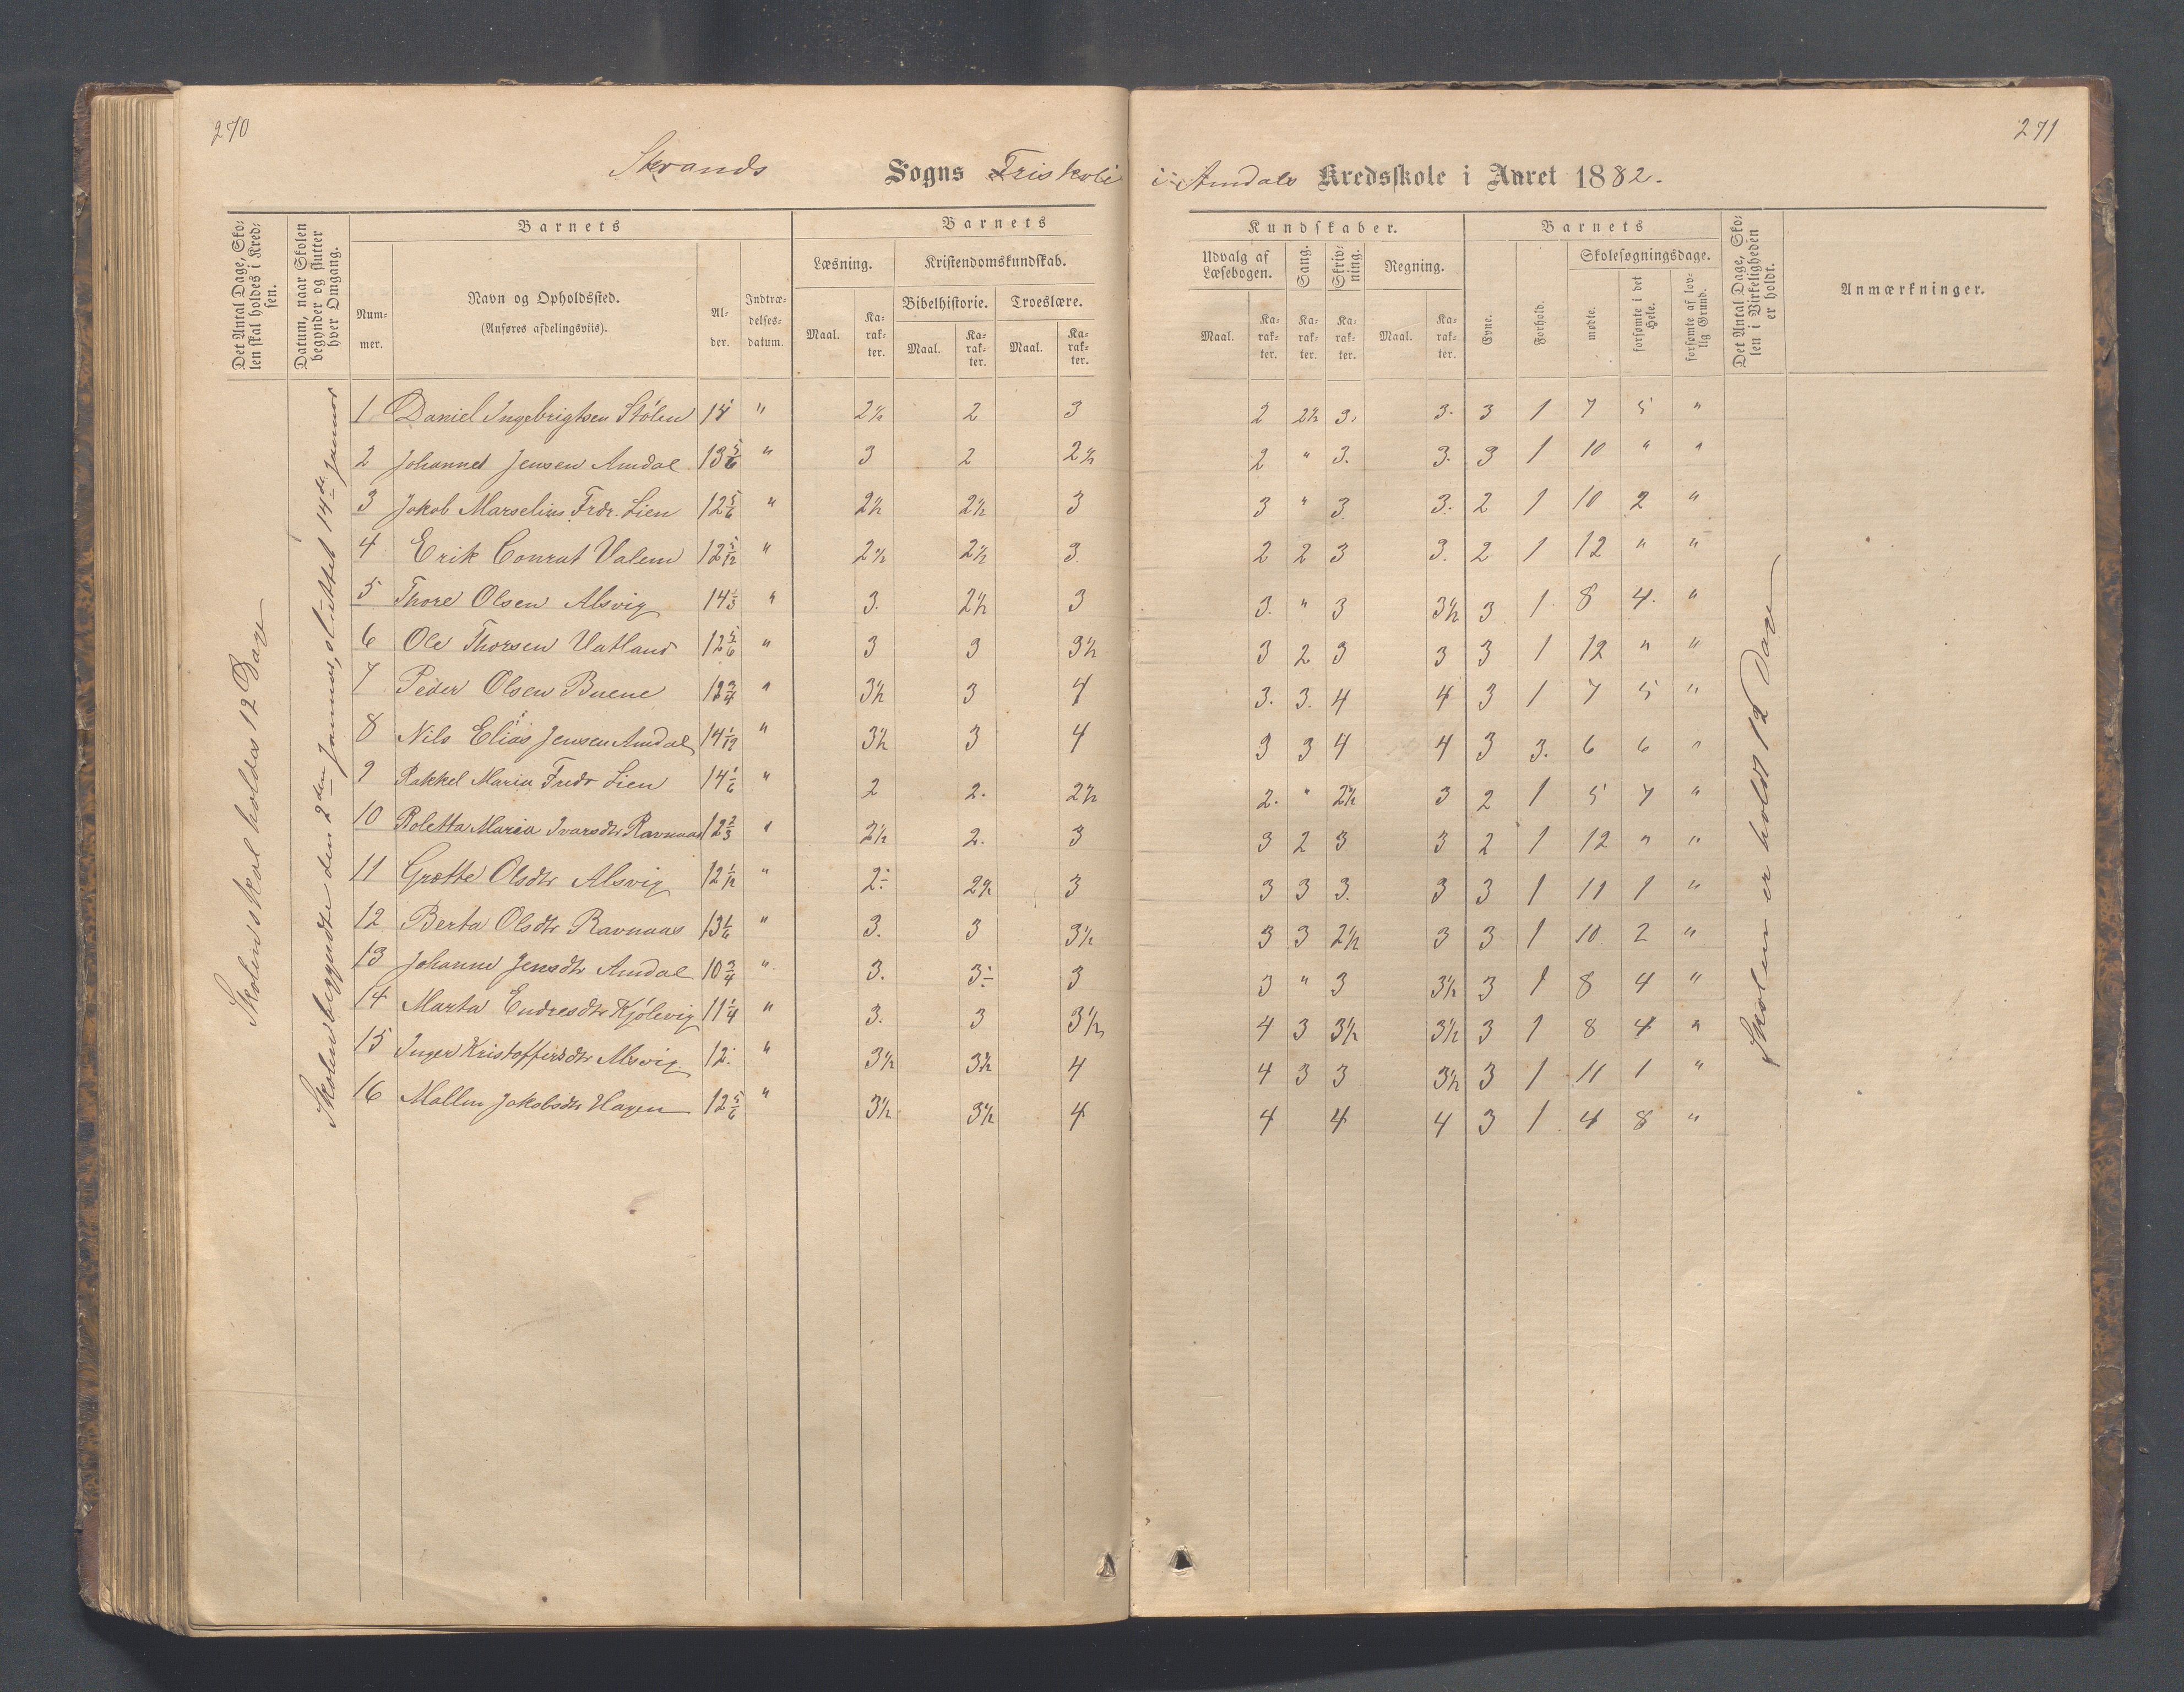 270
271
Strands Sogns Friskole i Amdals Kredsskole i Aaret 1882.
Det Antal Dage, Skolen skal holdes i Kredsen.
Datum, naar Skolen begynder og slutter hver Omgang.
Barnets
Nummer.
Navn og Opholdssted.
(Anføres afdelingsviis).
Alder.
Indtrædelsesdatum.
Barnets
Læsning.
Kristendomskundskab.
Bibelhistorie.
Troeslære.
Maal.
Karakter.
Maal.
Karakter.
Maal.
Karakter.
Kundskaber.
Udvalg af Læsebogen.
Sang.
Skrivning.
Regning.
Maal.
Karakter.
Karakter.
Karakter.
Maal.
Karakter.
Barnets
Evne.
Forhold.
Skolesøgningsdage.
mødte.
forsømte i det Hele.
forsømte af lovlig Grund.
Det Antal Dage, Skolen i Virkeligheden er holdt.
Anmærkninger.
Skolen skal holdes 12 Dage
Skolen begyndte den 2den Januar, sluttet 14de Januar
1 Daniel Ingebrigtsen Stölen 14 " 2½ 2 3 2 2½ 3. 3. 3 1 7 5 "
2 Johannes Jensen Amdal 13 5/6 " 3 2 2½ 2 " 3. 3. 3 1 10 " "
3 Jakob Marselius Frdr. Lien 12 5/6 " 2½ 2½ 3 3 " 3 3. 2 1 10 2 "
4 Erik Conrat Valem 12 5/12 " 2½ 2½ 3 2 2 3 3. 2 1 12 " "
5 Thore Olsen Alsvig 14 1/3 " 3. 2½ 3 3. " 3 3½ 3 1 8 4. "
6 Ole Thorsen Vatland 12 5/6 " 3 3 3½ 3 2 3 3 3 1 12 " "
7 Peder Olsen Buene 12 3/4 " 3½ 3 4 3. 3. 4 4 3 1 7 5 "
8 Nils Elias Jensen Amdal 14 1/12 " 3½ 3 4 3 3 4 4 3 3. 6 6 "
9 Rakkel Maria Fredr Lien 14 1/6 " 2 2. 2½ 2. " 2½ 3 2 1 5 7 "
10 Roletta Maria Ivarsdtr Ravnaas 12 2/3 " 2½ 2. 3 3 2 3 3 2 1 12 " "
11 Grætte Olsdtr Alsvig 12 1/12 " 2. 2½ 3 3 3 3. 3 3 1 11 1 "
12 Berta Olsdtr Ravnaas 13 1/6 " 3. 3 3½ 3 3 2½ 3 3 1 10 2 "
13 Johanne Jensdtr Amdal 10 3/4 " 3. 3 3 3 " 3 3½ 3 1 8 4 "
14 Marta Endresdtr Kjölevig 11 1/4 " 3. 3 3½ 4 3 3½ 3½ 3 1 8 4 "
15 Inger Kristoffersdtr Alsvig 12. " 3½ 3½ 4 4 3 3 3½ 3 1 11 1 "
16 Mallen Jakobsdtr Hagen 12 5/6 " 3½ 3½ 4 4 4 4 3 1 4 8 "
Skolen er holdt 12 Dage